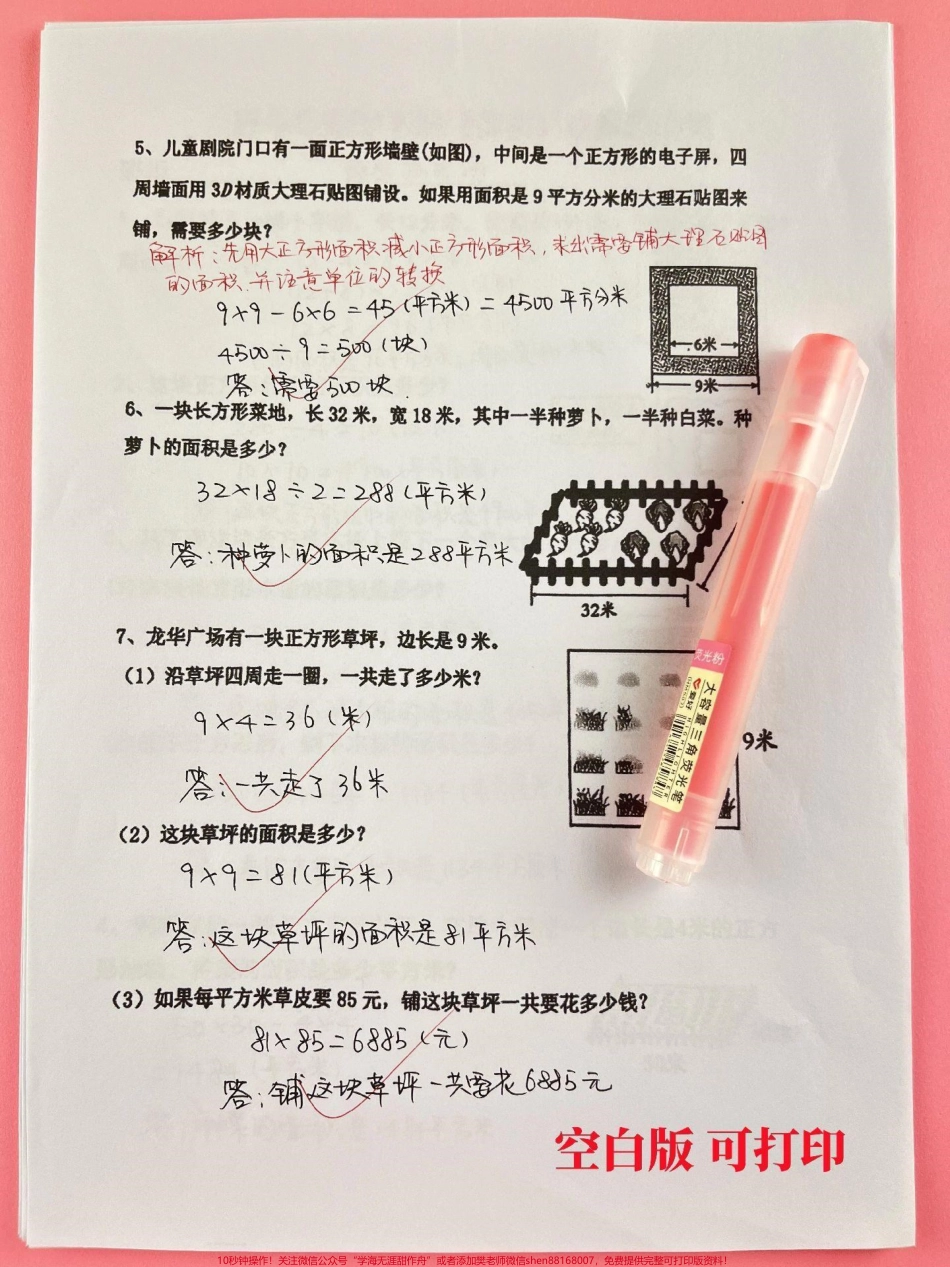 5、儿童剧院门口有一面正方形墙壁(如图)，中间是一个正方形的电子屏，四
周墙面用3D材质大理石贴图铺设。如果用面积是9平方分米的大理石贴图来
铺，需要多少块？
解析：先用大正方形面积减小正方形面积，求出需要铺大理石贴图
的面积，并注意单位的转换
9×9－6×6＝45(平方米)＝4500平方分米
4500÷9＝500(块)
答：需要500块.
6米
9米
6、一块长方形菜地，长32米，宽18米，其中一半种萝卜，一半种白菜。种
萝卜的面积是多少？
32×18÷2＝288(平方米)
答：种萝卜的面积是288平方米
32米
7、龙华广场有一块正方形草坪，边长是9米。
(1) 沿草坪四周走一圈，一共走了多少米？
9×4＝36(米)
答：一共走了36米
9米
荧光粉
大容量三角荧光笔
HIGHLIGHTER
爱好
(2) 这块草坪的面积是多少？
9×9＝81(平方米)
答：这块草坪的面积是81平方米
(3) 如果每平方米草皮要85元，铺这块草坪一共要花多少钱？
81×85＝6885(元)
答：铺这块草坪一共需花6885元
空白版 可打印
10秒钟操作！关注微信公众号“学海无涯甜作舟”或者添加樊老师微信shen88168007，免费提供完整可打印版资料！